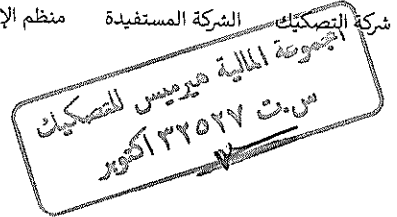 شركة التصكيك الشركة المستفيدة منظم الإ
المجموعة المالية هيرميس للتصكيك
س.ت ٣٢٥٢٧ أكتوبر